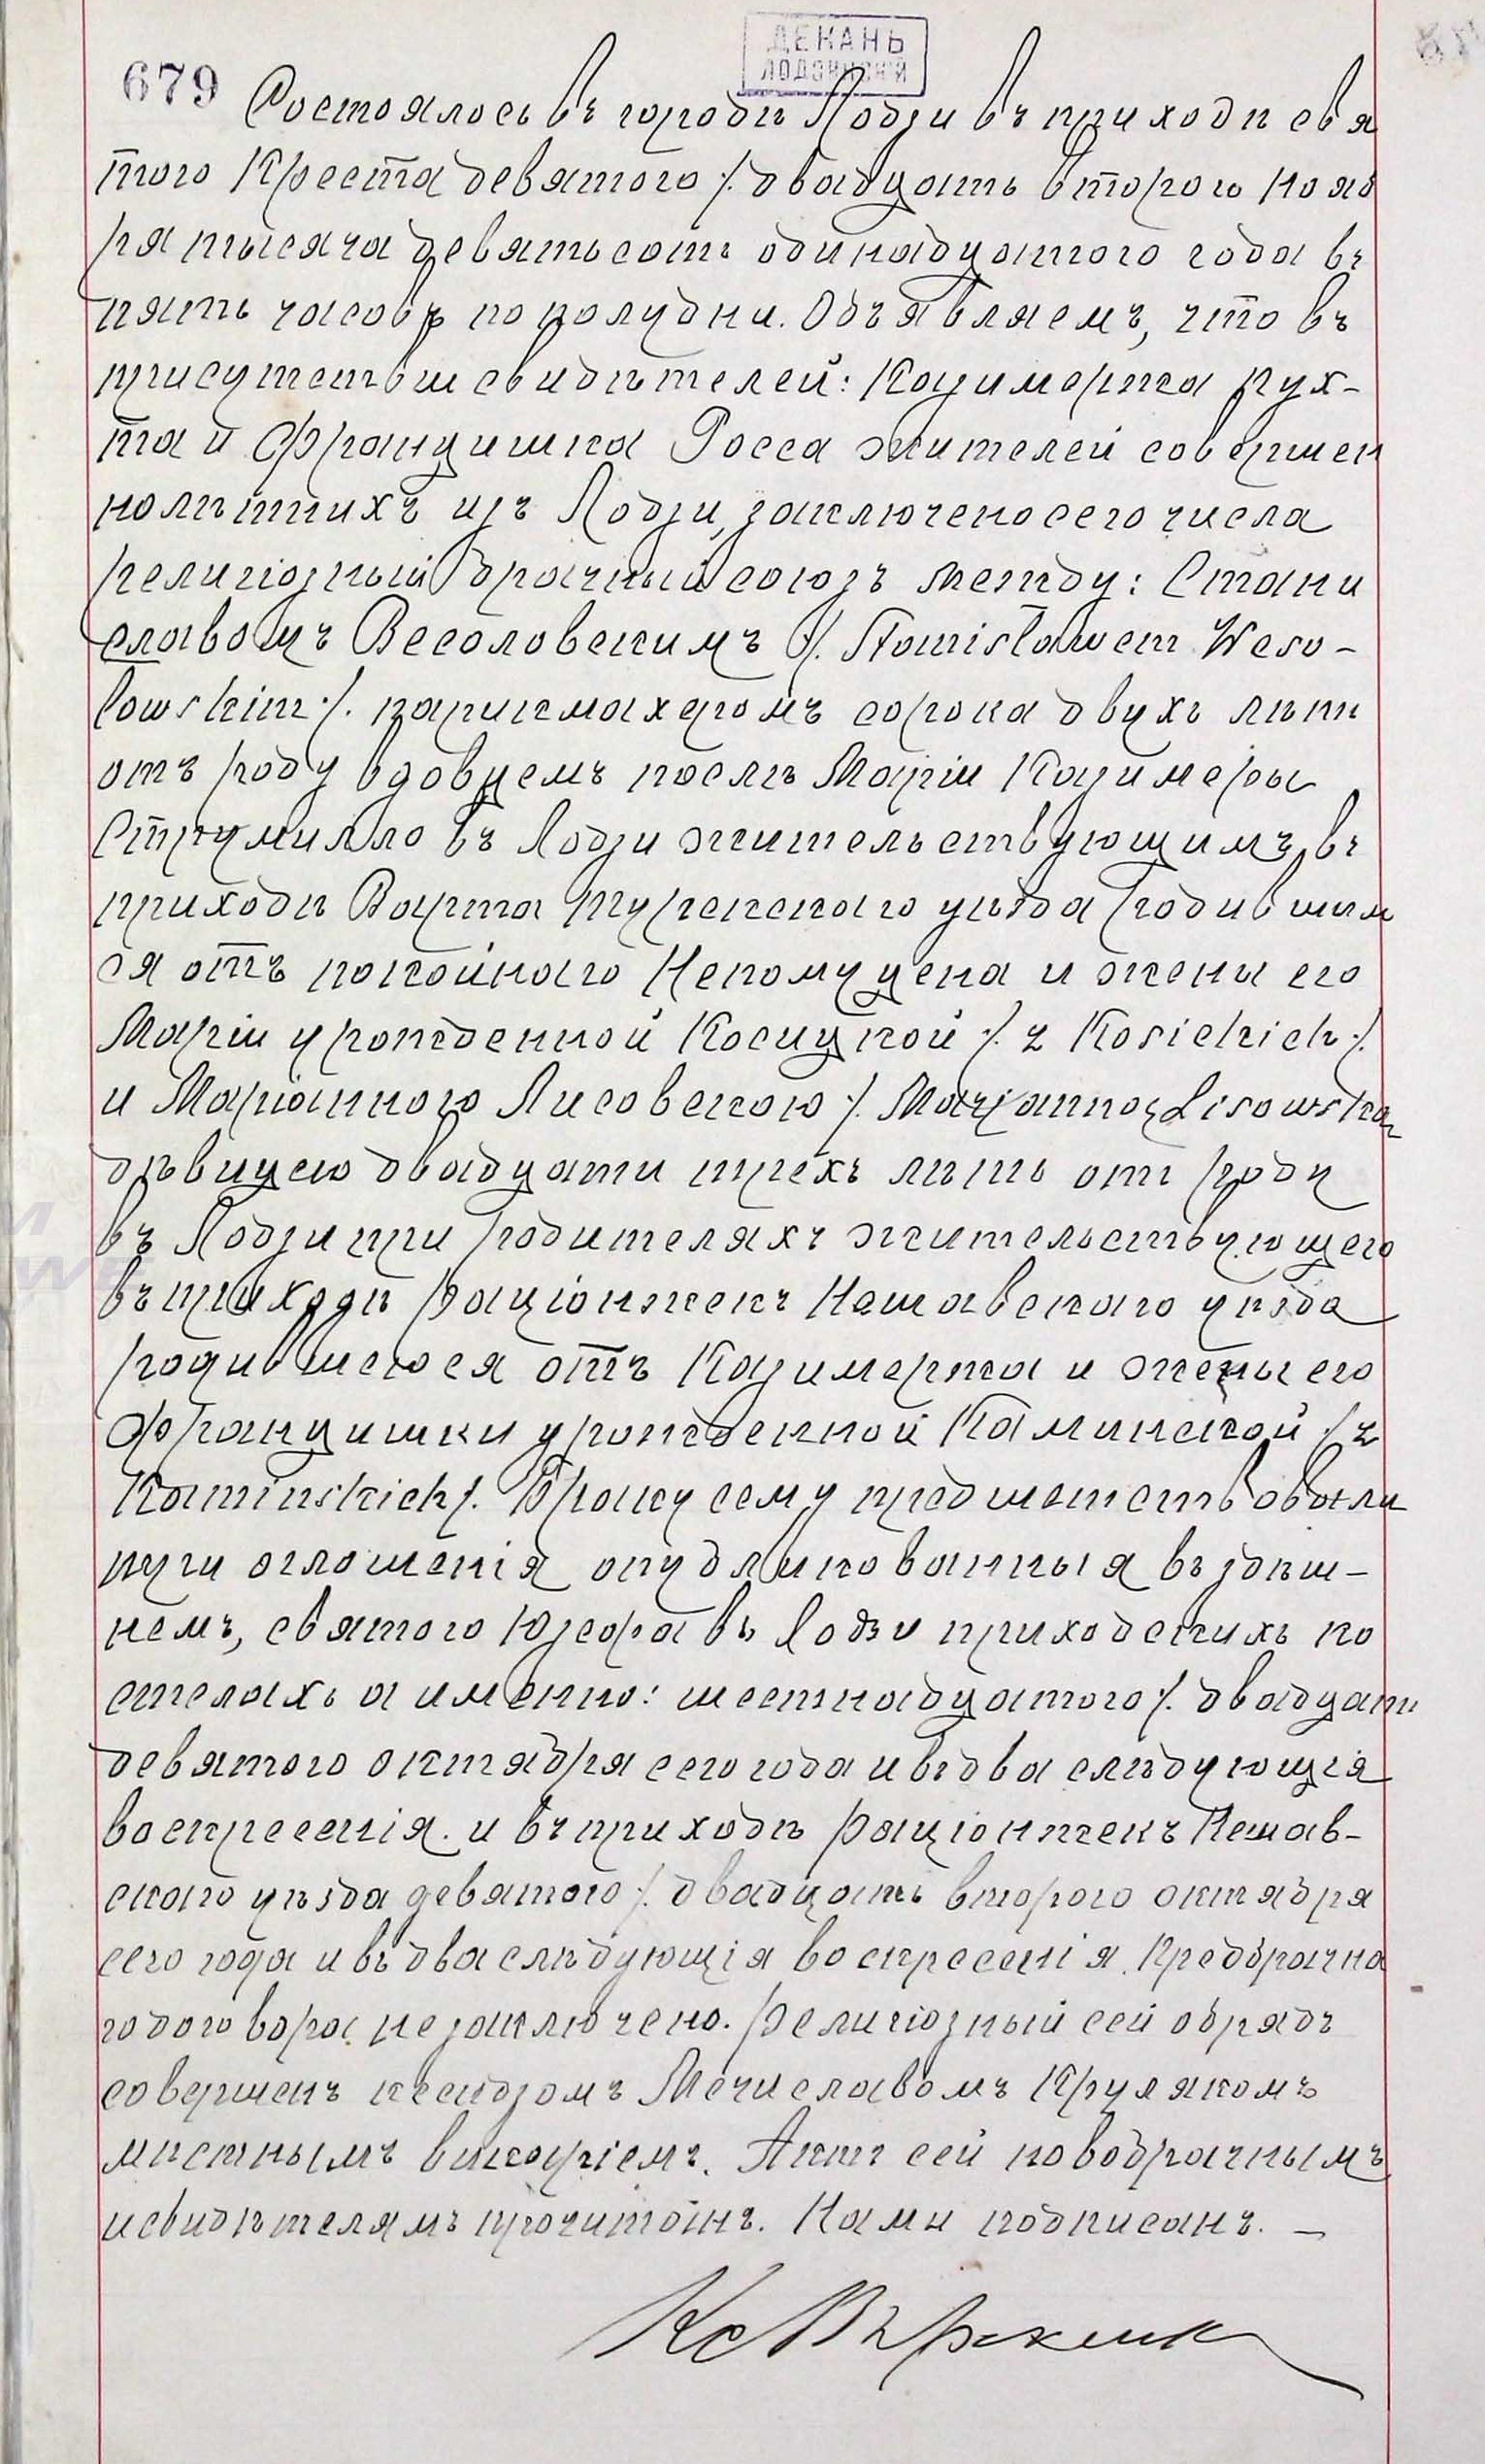 ДЕКАНЪ
ЛОДЗИНСКІЙ
679
Состоялось въ городѣ Лодзи въ приходѣ свя
того Креста девятого /. двадцать второго Нояб
ря тысяча девятьсотъ одинадцатого года въ
пять часовъ по полудни. Объявляемъ, что въ
присутствіи свидѣтелей: Казимержа Рух-
та и Францишка Росса жителей совершен
нолѣтнихъ изъ Лодзи, заключено сего числа
религіозный брачный союзъ между: Стани
славомъ Весоловскимъ /. Stanisławem Weso-
łowskim ./. парикмахеромъ сорока двухъ лѣтъ
отъ роду вдовцемъ послѣ Маріи Казимеры
Струмилло въ Лодзи жительствующимъ въ
приходѣ Варта Турекскаго уѣзда родившим
ся отъ покойнаго Непомуцена и жены его
Маріи урожденной Косицкой /. z Kosickich ./.
и Маріанною Лисовскою /. Marjanną Lisowską
дѣвицею двадцати трехъ лѣтъ отъ роду
въ Лодзи при родителяхъ жительствующею
въ приходѣ Раціонжекъ Нешавскаго уѣзда
родившеюся отъ Казимержа и жены его
Францишки урожденной Каминской /. z
Kamińskich /. Браку сему предшествовали
три оглашенія опубликованныя въ здѣш-
немъ, святого Юзефа въ Лодзи приходскихъ ко
стелахъ а именно: шестнадцатого /. двадцать
девятого октября сего года и въ два слѣдующія
воскресенія. и въ приходѣ Раціонжекъ Нешав-
скаго уѣзда девятого /. двадцать второго октября
сего года и въ два слѣдующія воскресенія. Предбрачна
го договора не заключено. Религіозный сей обрядъ
совершенъ ксендзомъ Мечиславомъ Крулякомъ
мѣстнымъ викаріемъ. Актъ сей новобрачнымъ
и свидѣтелямъ прочитанъ. Нами подписанъ. —